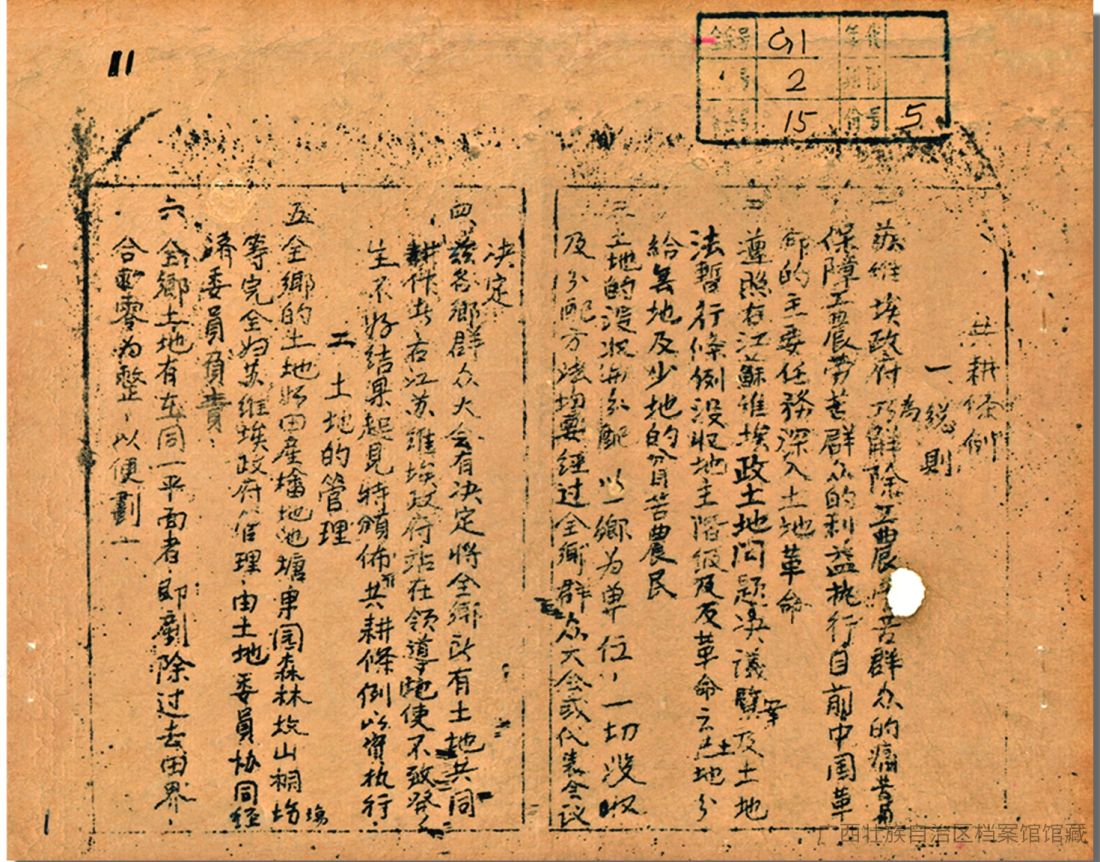 11
全宗号 G1 年代
号 2
15 份号 5
共耕条例
一、总则
一 苏维埃政府为解除工农劳苦群众的痛苦
保障工农劳苦群众的利益执行目前中国革
命的主要任务深入土地革命
二 遵照右江苏维埃政土地问题决议案及土地
法暂行条例没收地主阶级及反革命土地分
给无地及少地的贫苦農民
三 土地的没收与分配以一鄉为单位，一切没收
及分配方法均要经过全鄉群众大会或代表会议
决定
四 兹各鄉群众大会有决定将全鄉所有土地共同
耕作者右江苏维埃政府站在领導地使不致發
生不好结果起见特頒佈共耕條例以资执行
二 土地的管理
五 全鄉的土地如田産 地池塘東园森林坟山桐塲
等完全归苏维埃政府管理由土地委員协同经
济委員負責
六 全鄉土地有在同一平面者即剷除过去田界
合零为整，以便劃一
1
广西壮族自治区档案馆馆藏